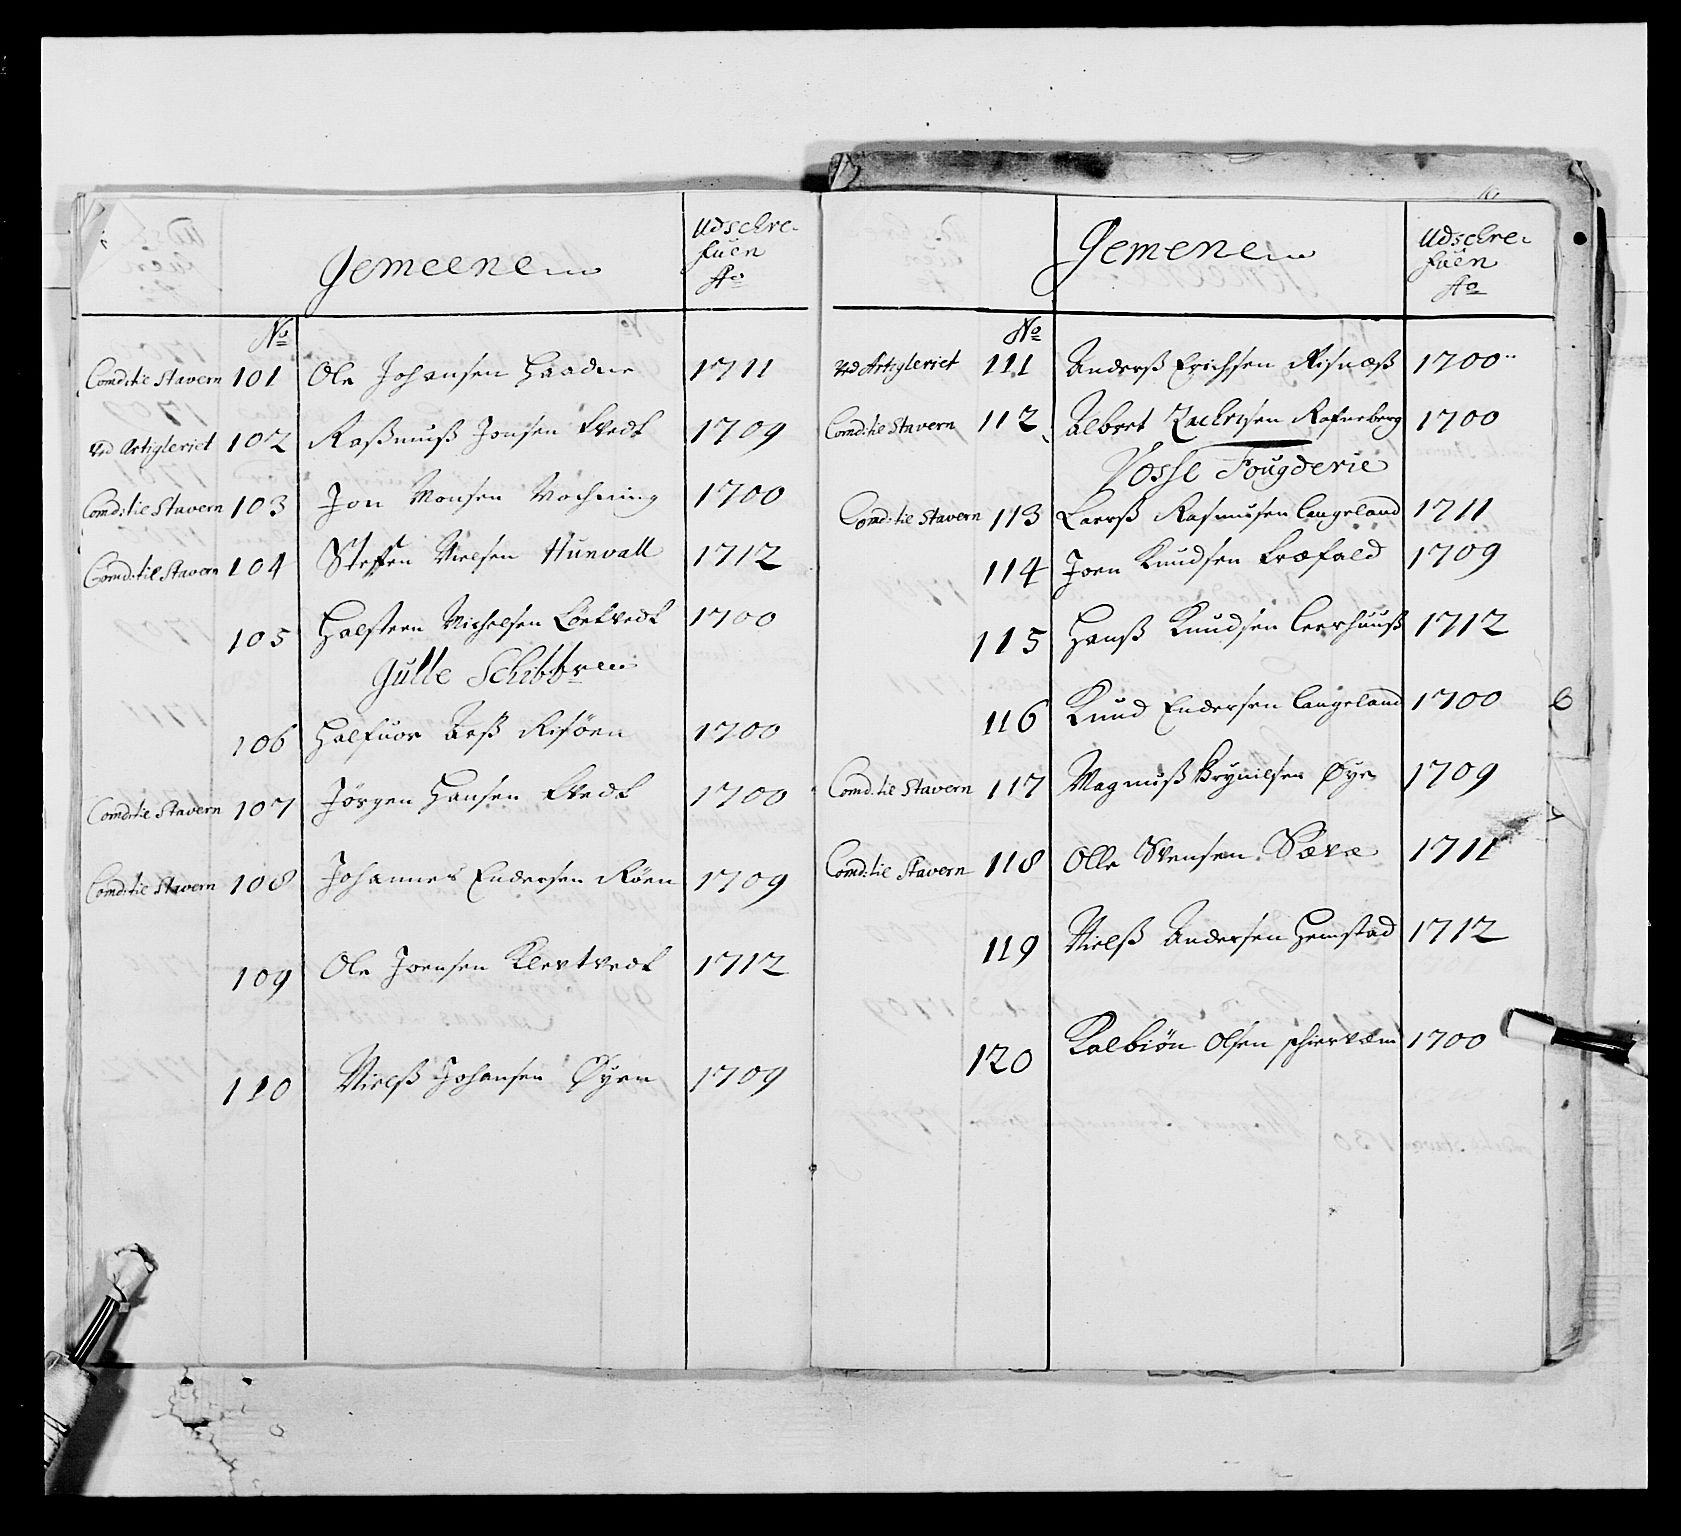 Gemeene
Udschre-
fuen
Ao
No
Comd: til Stavern 101 Ole Johansen Haadne 1711
Ved Artigleriet 102 Raßmuß Jonsen Kvedt 1709
Comd: til Stavern 103 Jon Monsen 1700
Comd: til Stavern 104 Steffen Nielsen Hunvall 1712
105 Halsteen Michelsen 1700
Gulle Schibbren
106 Halfuor Aeß Risöen 1700
Comd: til Stavern 107 Jörgen Hansen Kvedt 1700
Comd: til Stavern 108 Johannes Endersen Röen 1709
109 Ole Joensen Klevtvedt 1712
110 Nielß Johansen Øyen 1709
Gemene
Udschre-
fuen
Ao
No
Ved Artigleriet 111 Anderß Erichsen Risnæß 1700
Comd: til Stavern 112 Albret Zachrisen Rafneberg 1700
Vosse Fougderie
Comd: til Stavern 113 Laerß Rasmusen Langeland 1711
114 Joen Knudsen 1709
115 Hanß Knudsen Leerhuuß 1712
116 Knud Endersen Langeland 1700
Comd: til Stavern 117 Magnuß Brynilsen Øye 1709
Comd: til Stavern 118 Olle Svensen Sæve 1711
119 Nielß Andersen Hemstad 1712
120 Kolbiön Olsen 1700